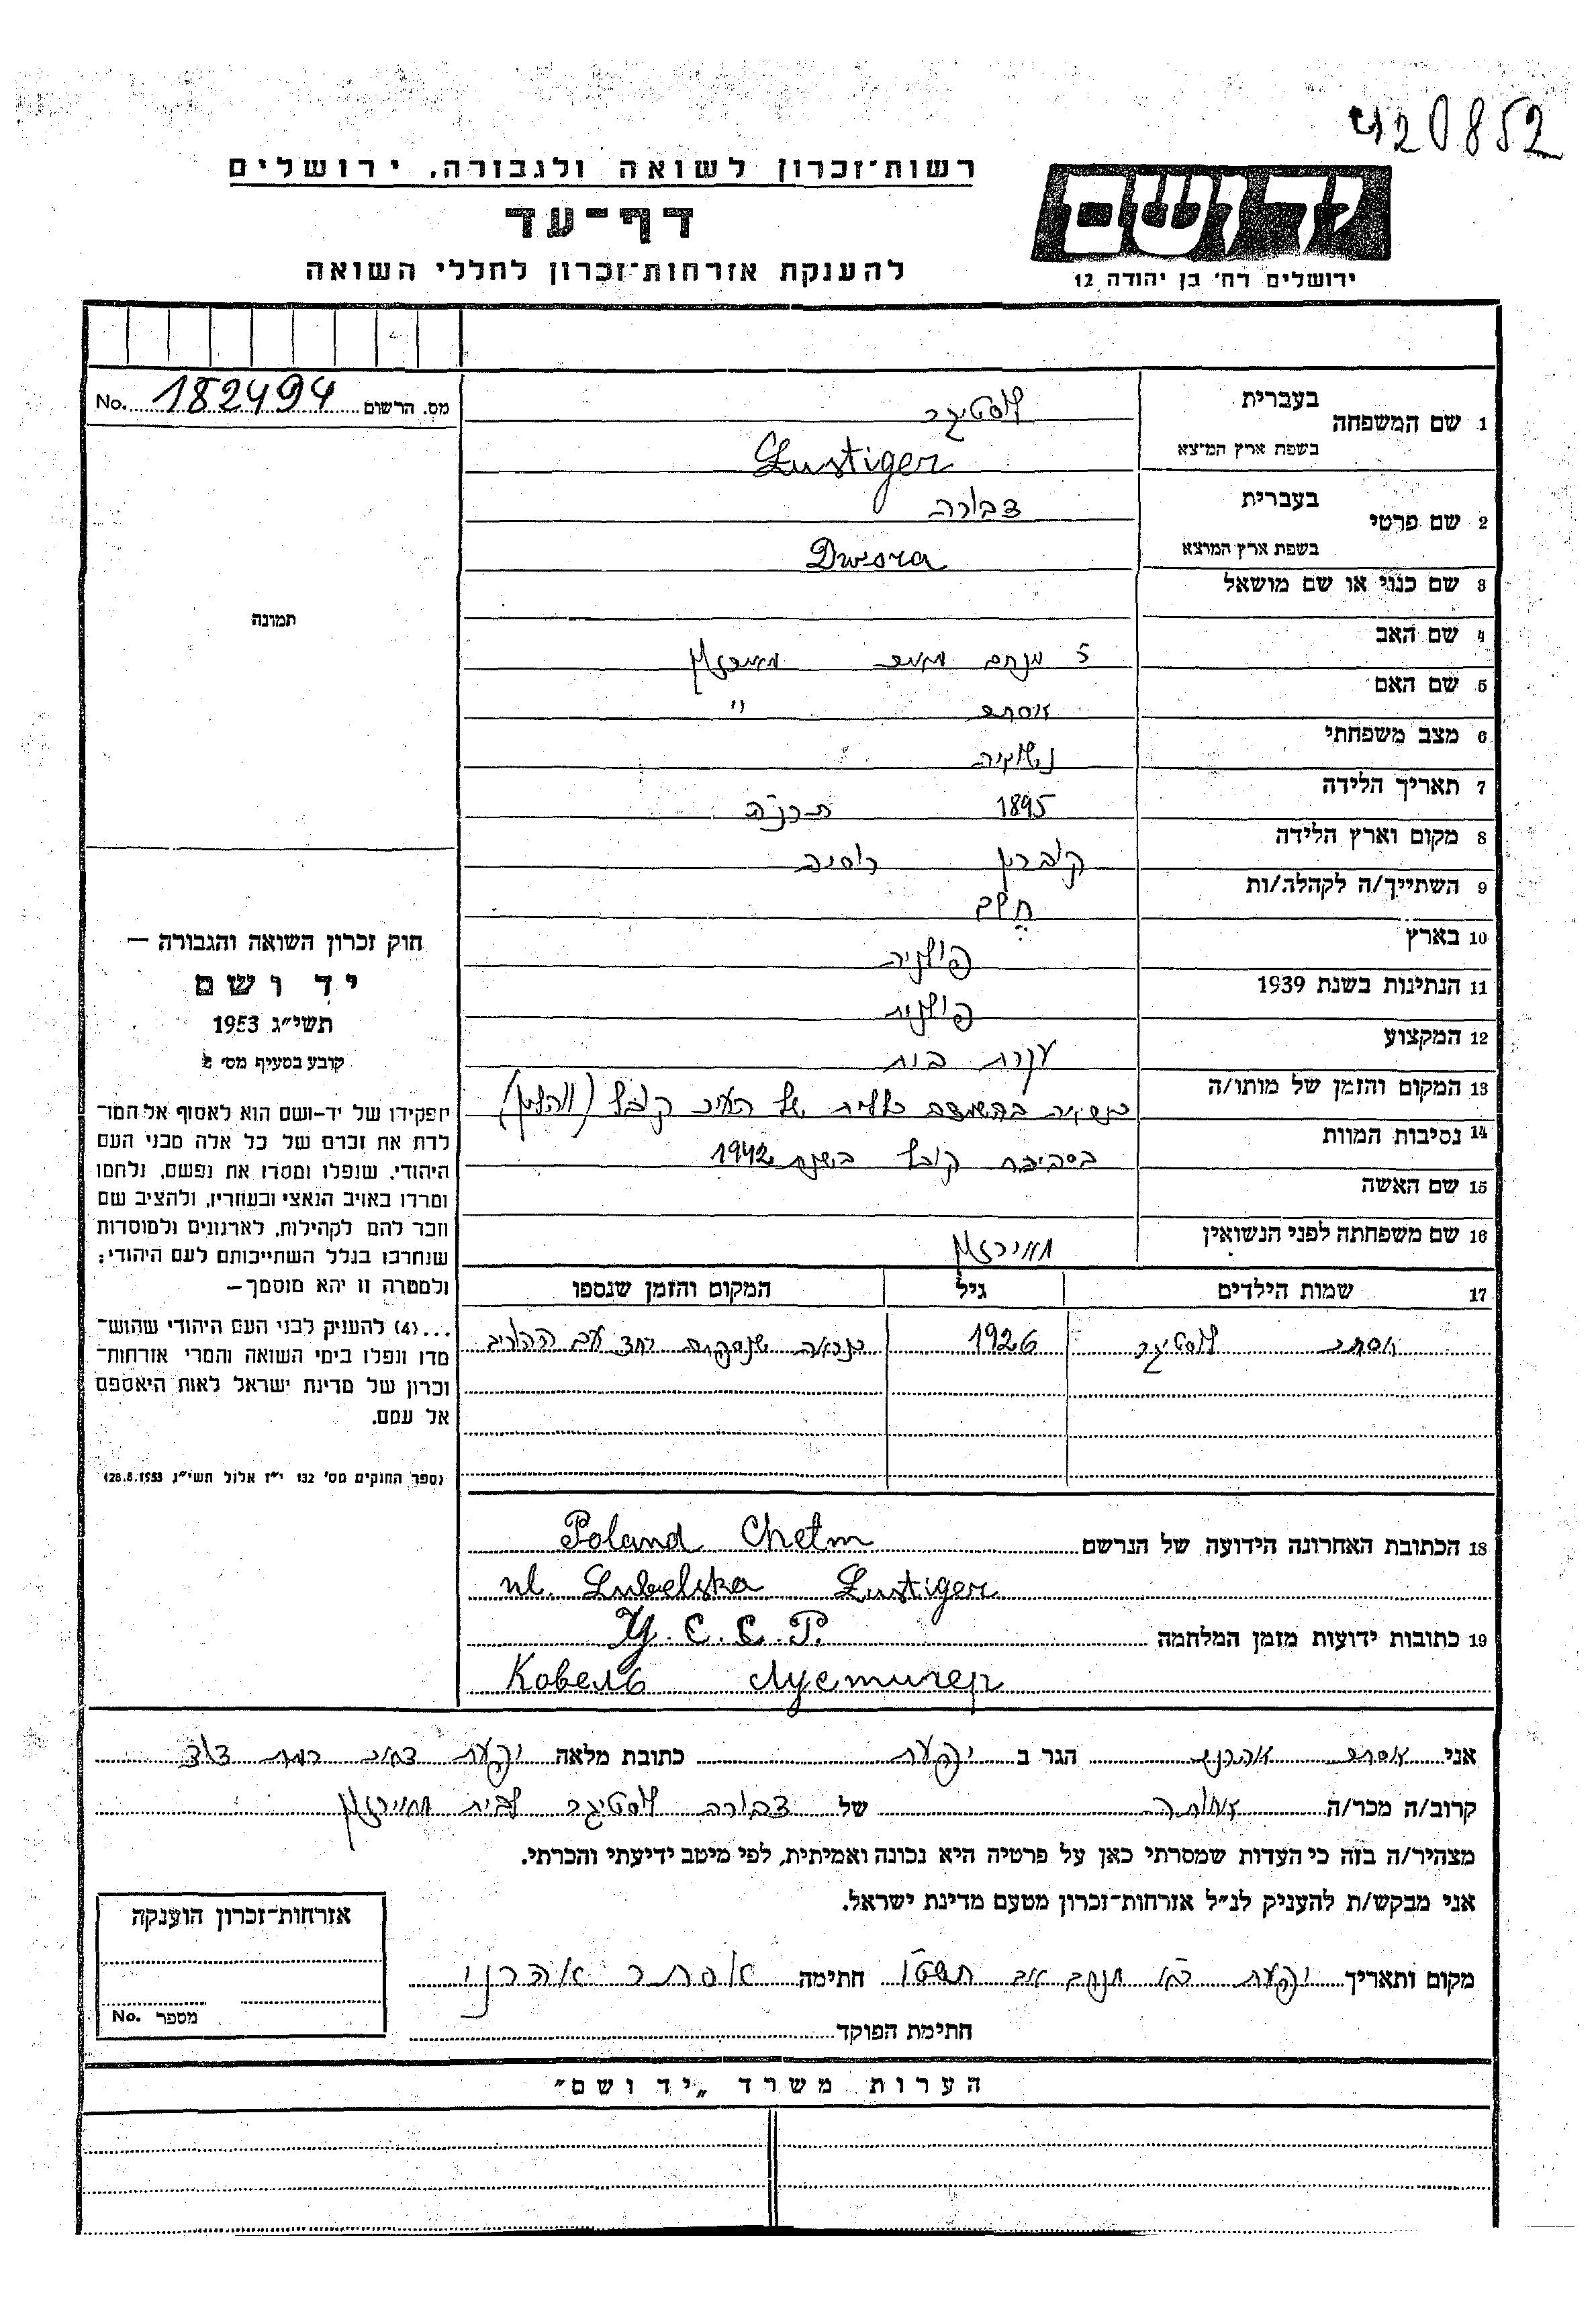 420852
רשות־זכרון לשואה ולגבורה, ירושלים
דף־עד
להענקת אזרחות־זכרון לחללי השואה
יד ושם
ירושלים רח' בן יהודה 12
מס. הרשום 182494 No.
תמונה
חוק זכרון השואה והגבורה —
יד ושם
תשי״ג 1953
קובע בסעיף מס' 2
תפקידו של יד-ושם הוא לאסוף אל המו־
לדת את זכרם של כל אלה מבני העם
היהודי, שנפלו ומסרו את נפשם, נלחמו
ומרדו באויב הנאצי ובעוזריו, ולהציב שם
וזכר להם לקהילות, לארגונים ולמוסדות
שנחרבו בגלל השתייכותם לעם היהודי;
ולמטרה זו יהא מוסמך —
...(4) להעניק לבני העם היהודי שהוש־
מדו ונפלו בימי השואה והמרי אזרחות־
זכרון של מדינת ישראל לאות היאספם
אל עמם.
(ספר החוקים מס' 132 י״ז אלול תשי״ג 28.8.1953)
1 שם המשפחה בעברית לוסטיגר
בשפת ארץ המוצא Lustiger
2 שם פרטי בעברית דבורה
בשפת ארץ המוצא Dwora
3 שם כנוי או שם מושאל
4 שם האב מנחם
5 שם האם אסתר "
6 מצב משפחתי נשואה
7 תאריך הלידה 1895 תרנ״ה
8 מקום וארץ הלידה קוברין רוסיה
9 השתייך/ה לקהלה/ות חלם
10 בארץ פולניה
11 הנתינות בשנת 1939 פולנית
12 המקצוע עקרת בית
13 המקום והזמן של מותו/ה בהשמדה כללית של העיר קובל (ווהלין)
14 נסיבות המוות בסביבת קובל בשנת 1942
15 שם האשה
16 שם משפחתה לפני הנשואין
17 שמות הילדים גיל המקום והזמן שנספו
אסתר לוסטיגר 1926 כנראה יחד עם ההורים
18 הכתובת האחרונה הידועה של הנרשם Poland Chełm
ul. Lubelska Lustiger
19 כתובות ידועות מזמן המלחמה У.С.С.Р.
Ковель Лустигер
אני אסתר אהרני הגר ב יקנעם כתובת מלאה יקנעם דאר רמת דוד
קרוב/ה מכר/ה של דבורה לוסטיגר לבית
מצהיר/ה בזה כי העדות שמסרתי כאן על פרטיה היא נכונה ואמיתית, לפי מיטב ידיעתי והכרתי.
אני מבקש/ת להעניק לנ״ל אזרחות־זכרון מטעם מדינת ישראל.
מקום ותאריך יקנעם מנחם אב חתימה אסתר אהרני
חתימת הפוקד
אזרחות־זכרון הוענקה
מספר No.
הערות משרד „יד ושם״